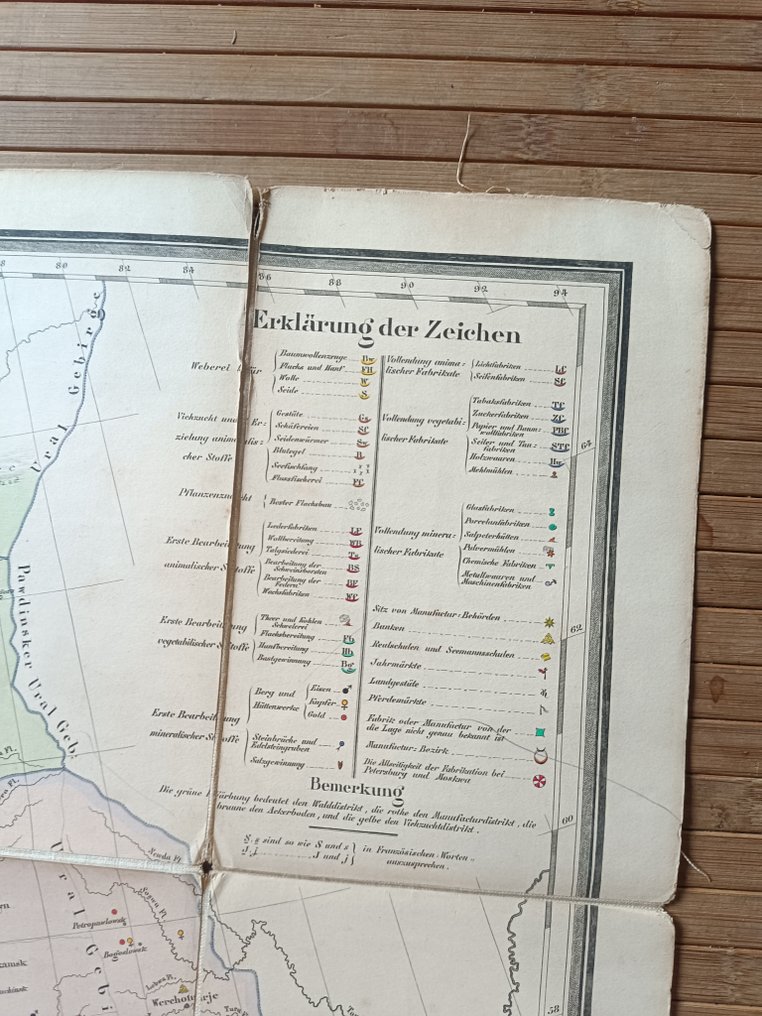 80 82 84 86 88 90 92 94
Erklärung der Zeichen
Weberei für
Baumwollenzeuge Bw
Flachs und Hanf FH
Wolle W
Seide S
Viehzucht und Er:
ziehung animalis:
cher Stoffe
Gestüte
Schäfereien
Seidenwürmer
Blutegel
Seefischfang
Flussfischerei
Pflanzenzucht
Bester Flachsbau
Erste Bearbeitung
animalischer Stoffe
Lederfabriken
Wollbereitung
Talgsiederei
Bearbeitung der
Schweinsborsten BS
Bearbeitung der
Federn BF
Wachsfabriken
Erste Bearbeitung
vegetabilischer Stoffe
Theer und Kohlen
Schwelerei
Flachsbereitung
Hanfbereitung
Bastgewinnung
Erste Bearbeitung
mineralischer Stoffe
Berg und
Hüttenwerke
Eisen
Kupfer
Gold
Steinbrüche und
Edelsteingruben
Salzgewinnung
Vollendung anima:
lischer Fabrikate
Lichtfabriken Lf
Seifenfabriken Sf
Vollendung vegetabi:
lischer Fabrikate
Tabaksfabriken
Zuckerfabriken
Papier und Baum:
wollfabriken
Seiler und Tau:
fabriken
Holzwaaren
Mehlmühlen
Vollendung minera:
lischer Fabrikate
Glasfabriken
Porcelanfabriken
Salpeterhütten
Pulvermühlen
Chemische Fabriken
Metallwaaren und
Maschinenfabriken
Sitz von Manufactur: Behörden
Banken
Realschulen und Seemannsschulen
Jahrmärkte
Landgestüte
Pferdemärkte
Fabrik oder Manufactur von der
die Lage nicht genau bekannt ist
Manufactur: Bezirk
Die Allseitigkeit der Fabrikation bei
Petersburg und Moskwa
Bemerkung
Die grüne Färbung bedeutet den Walddistrikt, die rothe den Manufacturdistrikt, die
braune den Ackerboden, und die gelbe den Viehzuchtdistrikt.
S, s sind so wie S und s
J, j J und j
in Französischen Worten
auszusprechen.
64
62
60
58
Ural Gebirge
Pawdinsker Ural Geb.
Ural Gebi
Soswa Fl.
Petropawlowsk
Bogoslowsk
Werchoturje